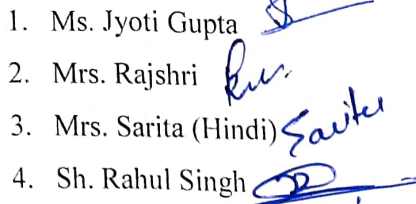 1. Ms. Jyoti Gupta
2. Mrs. Rajshri
3. Mrs. Sarita (Hindi) Sarita
4. Sh. Rahul Singh